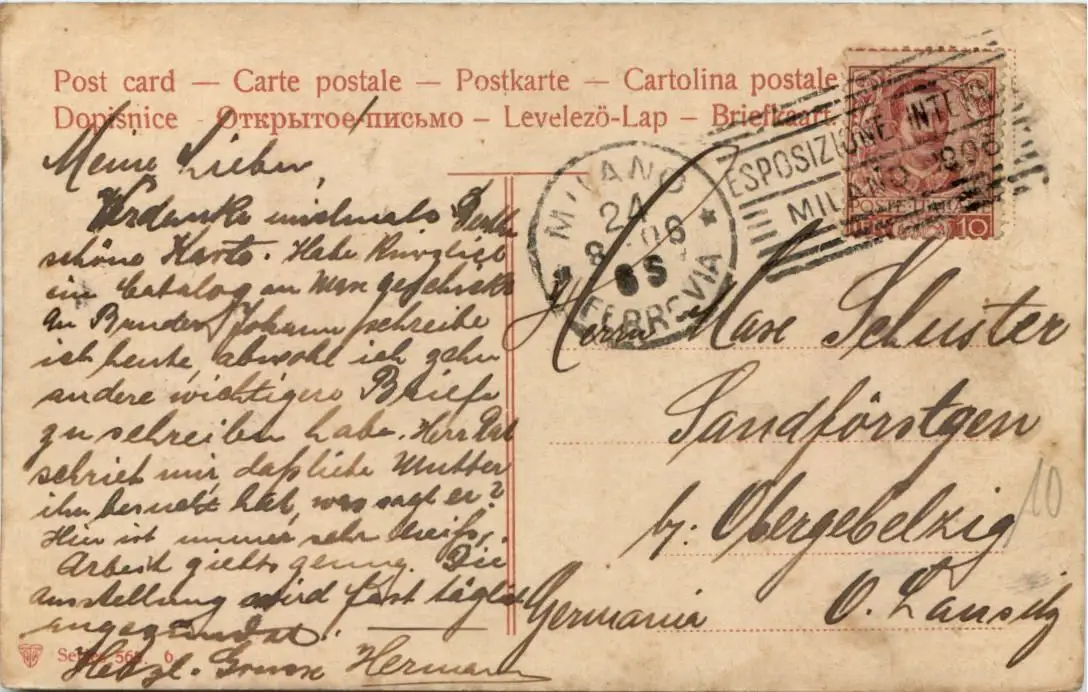 Post card — Carte postale — Postkarte — Cartolina postale
Dopisnice - Открытое письмо – Levelezö-Lap – Briefkaart
Meine Lieben,
Verdanke viel schöne Karte. Habe kürzlich
ein Catalog an Max geschickt
An Bruder Johann schreibe
ich heute, obwohl ich zehn
andere wichtigere Briefe
zu schreiben habe. Herr
schrieb mir, daß liebe Mutter
ihn besucht hat, was sagt er?
Hier ist immer sehr heiß,
Arbeit giebts genug. Die
Ausstellung wird fast täglich
Herzl. Grüsse Hermann
MILANO
24
8 06
6S
FERROVIA
ESPOSIZIONE INTER
MILANO 1906
POSTE ITALIANE
10
Herrn Max Schuster
Sandförstgen
b. Obergebelzig
Germania O. Lausitz
10
Series 6